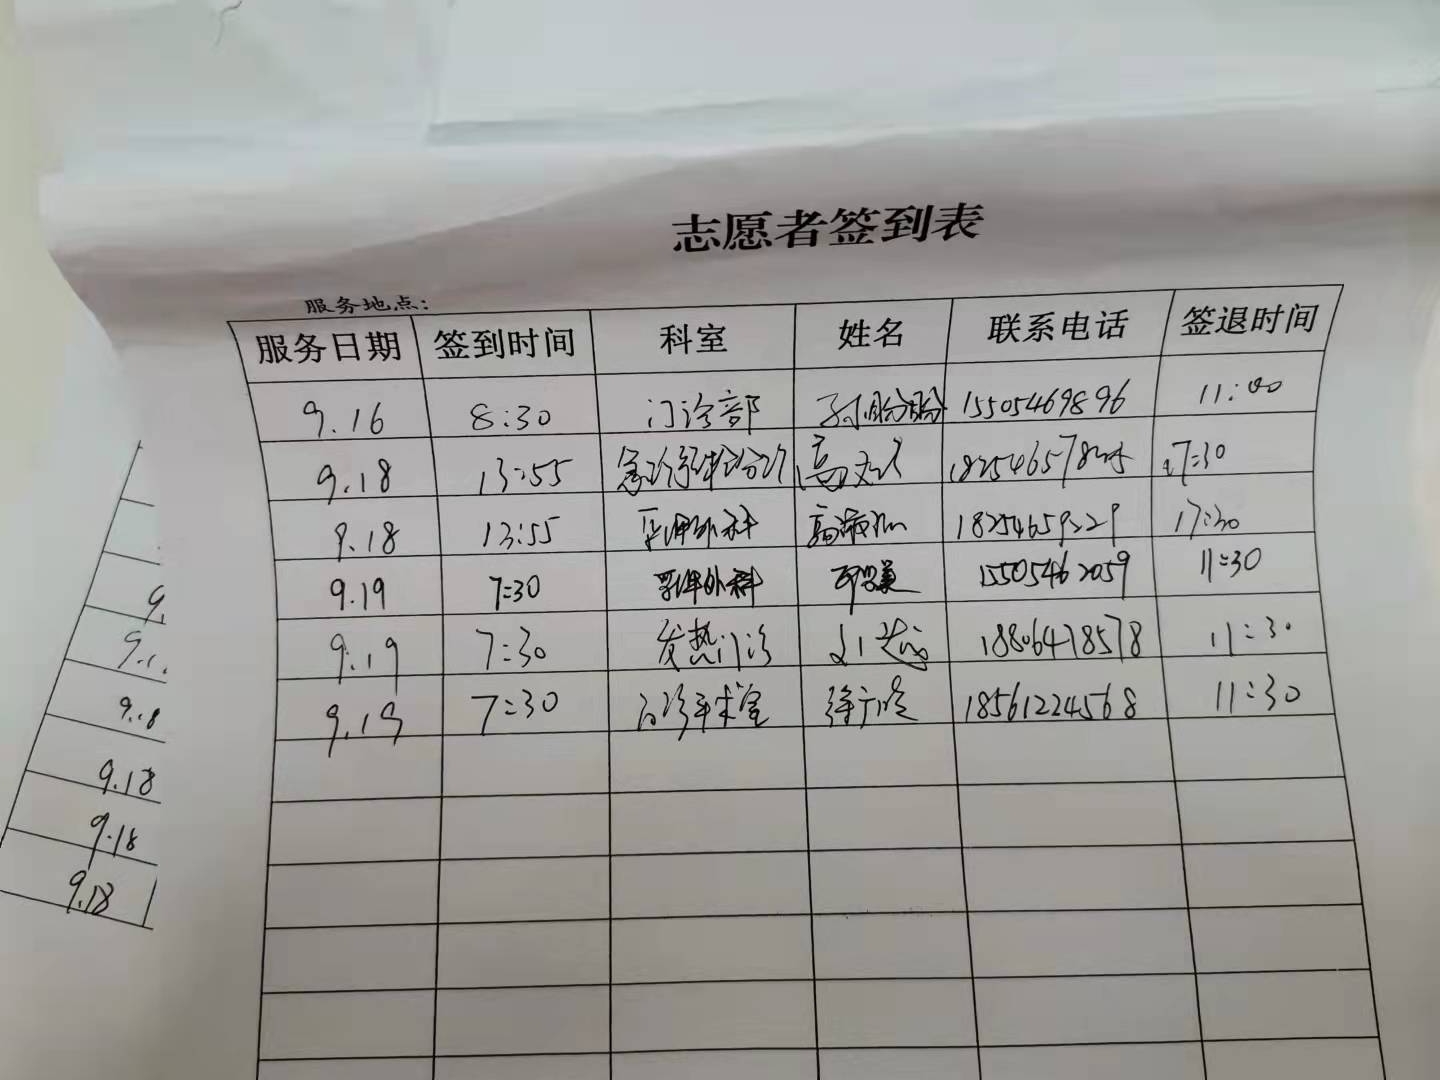 志愿者签到表
服务地点:
服务日期 签到时间 科室 姓名 联系电话 签退时间
9.16 8:30 门诊部 孙盼盼 15505469896 11:00
9.18 13:55 高 17:30
9.18 13:55 外科 高 18254659229 17:30
9.19 7:30 外科 15505462059 11:30
9.19 7:30 发热门诊 18806478578 11:30
9.19 7:30 手术室 徐 18561224568 11:30
9.
9.1
9.18
9.18
9.18
9.18